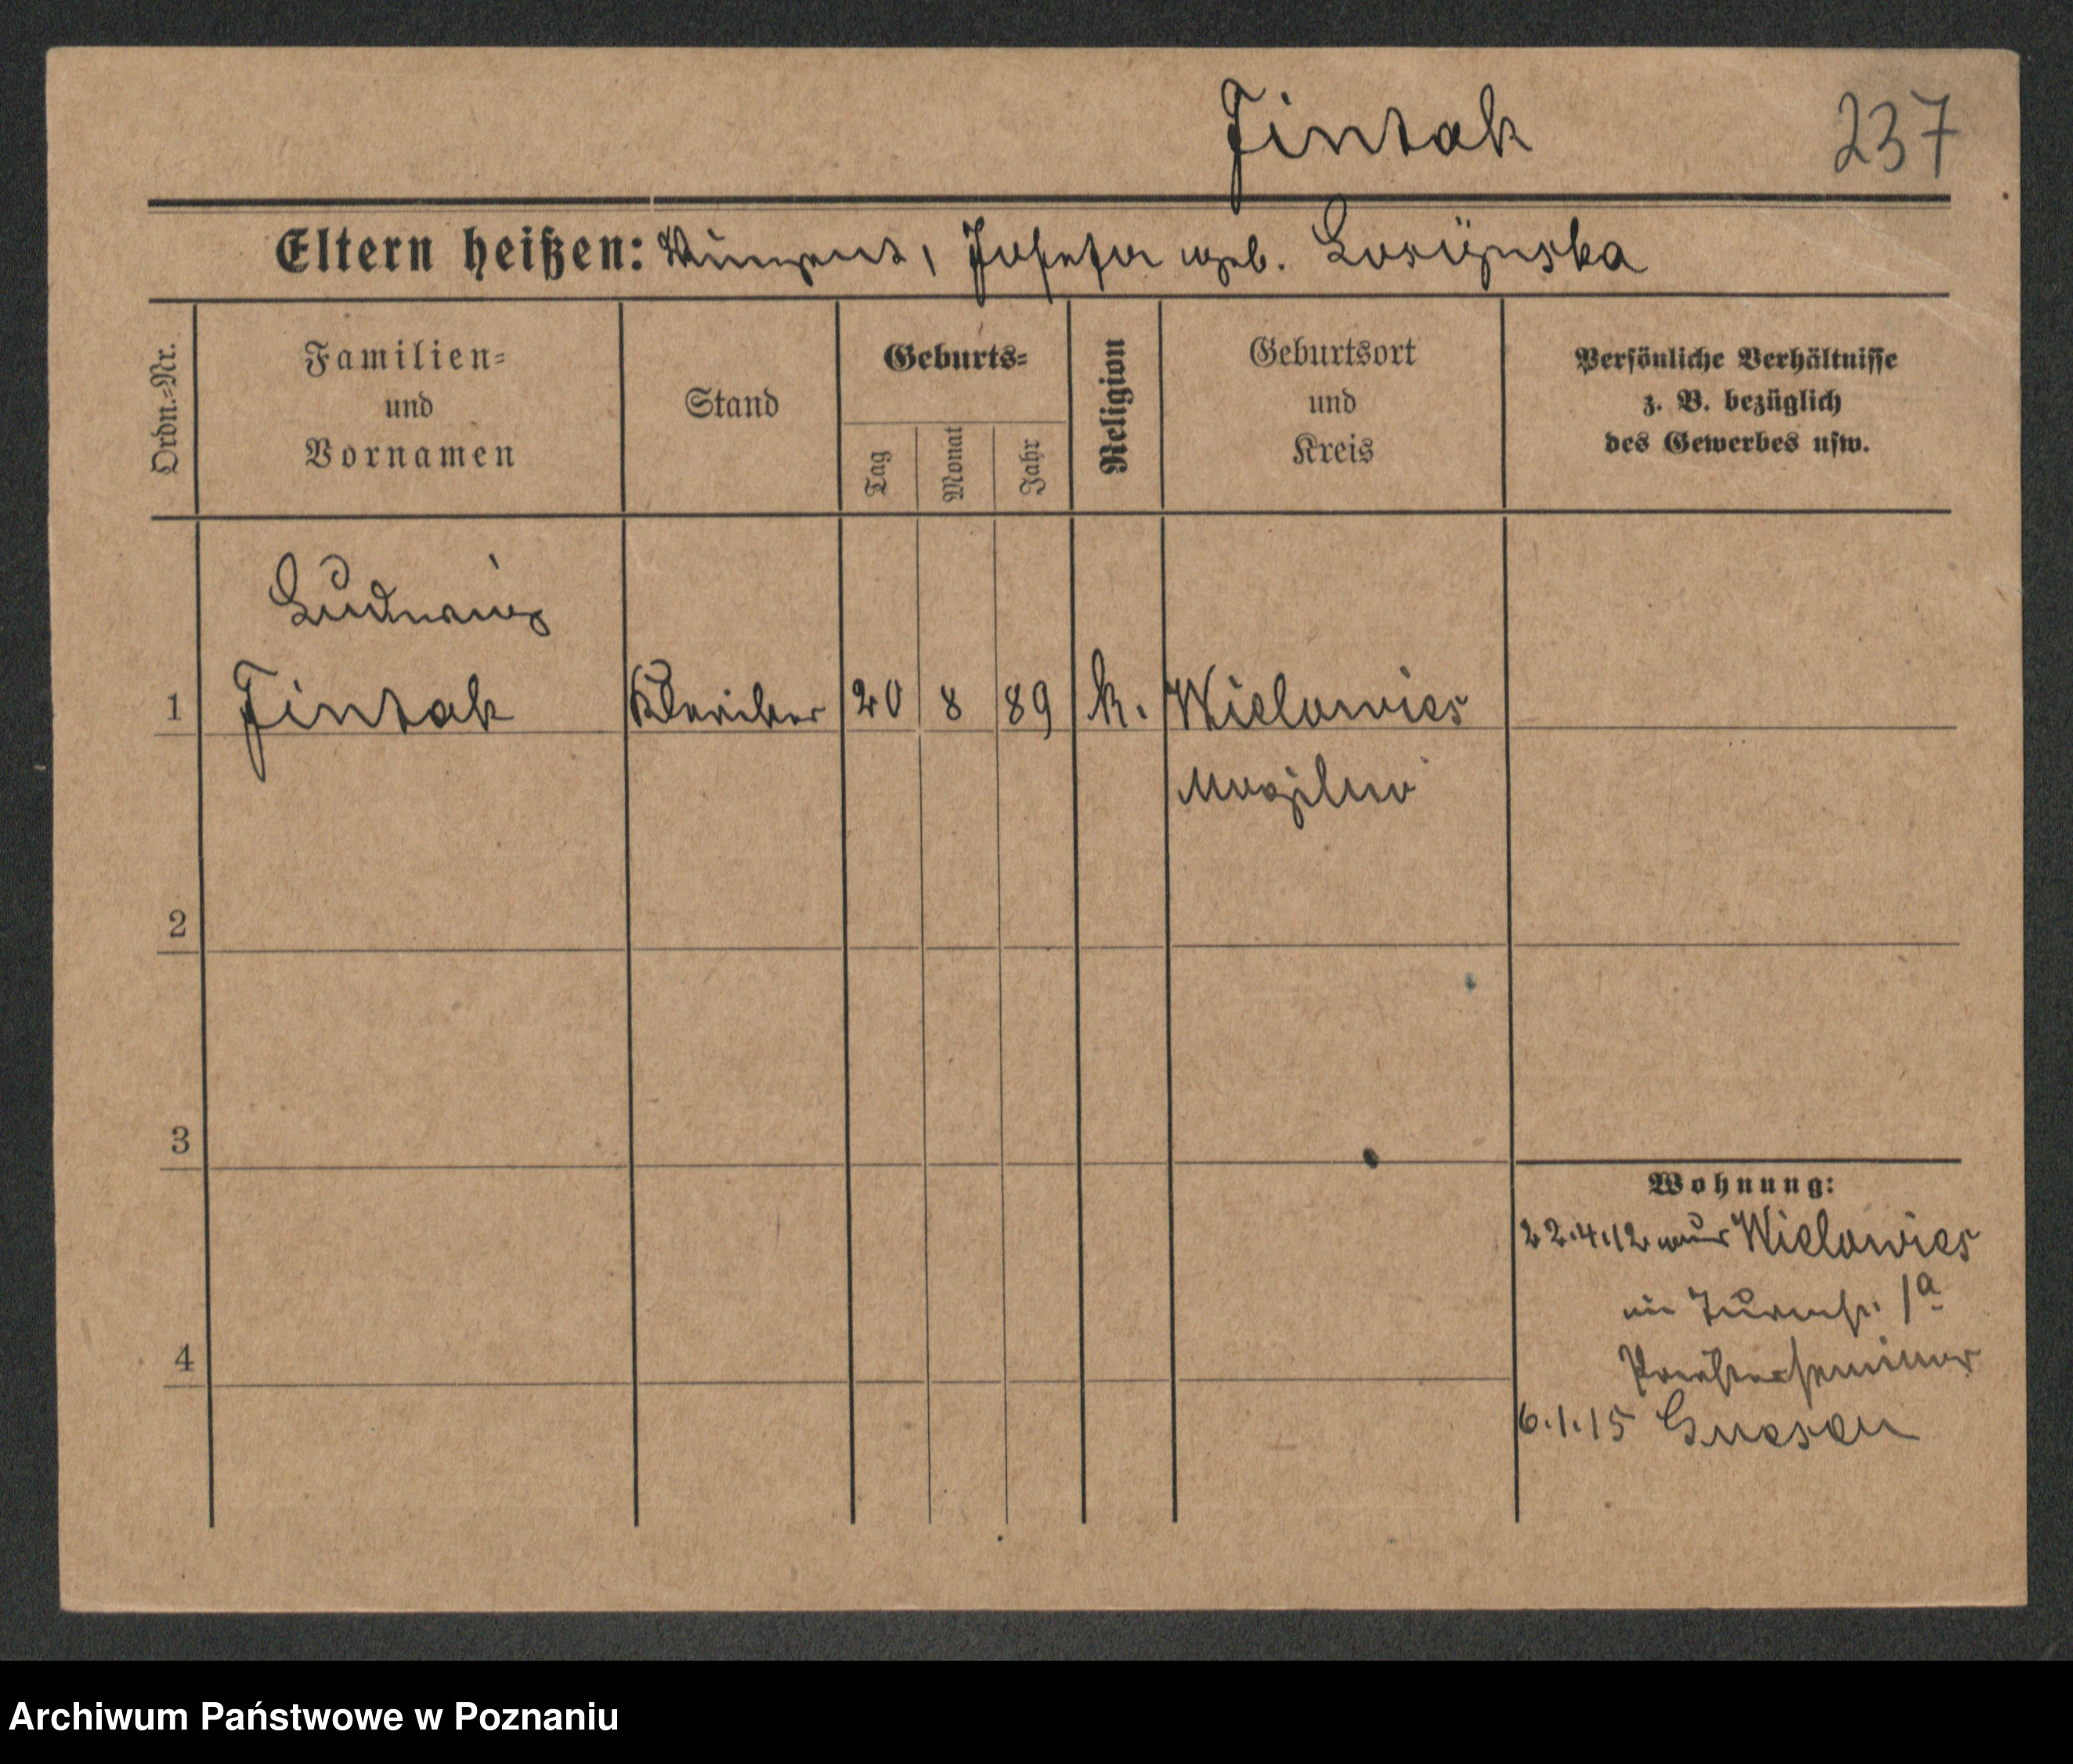 Jintrak
237
Eltern heißen: Vinzent, Josefa geb. Loszynska
Ordn.=Nr.
Familien=
und
Vornamen
Stand
Geburts=
Tag
Monat
Jahr
Religion
Geburtsort
und
Kreis
Persönliche Verhältnisse
z. B. bezüglich
des Gewerbes usw.
Ludwig
1 Jintrak Kleriker 20 8 89 k. Wielowies
Mogilno
2
3
Wohnung:
22.4.12 aus Wielowies
in Turmstr. 1a
4
Priesterseminar
6.1.15 Gnesen
Archiwum Państwowe w Poznaniu